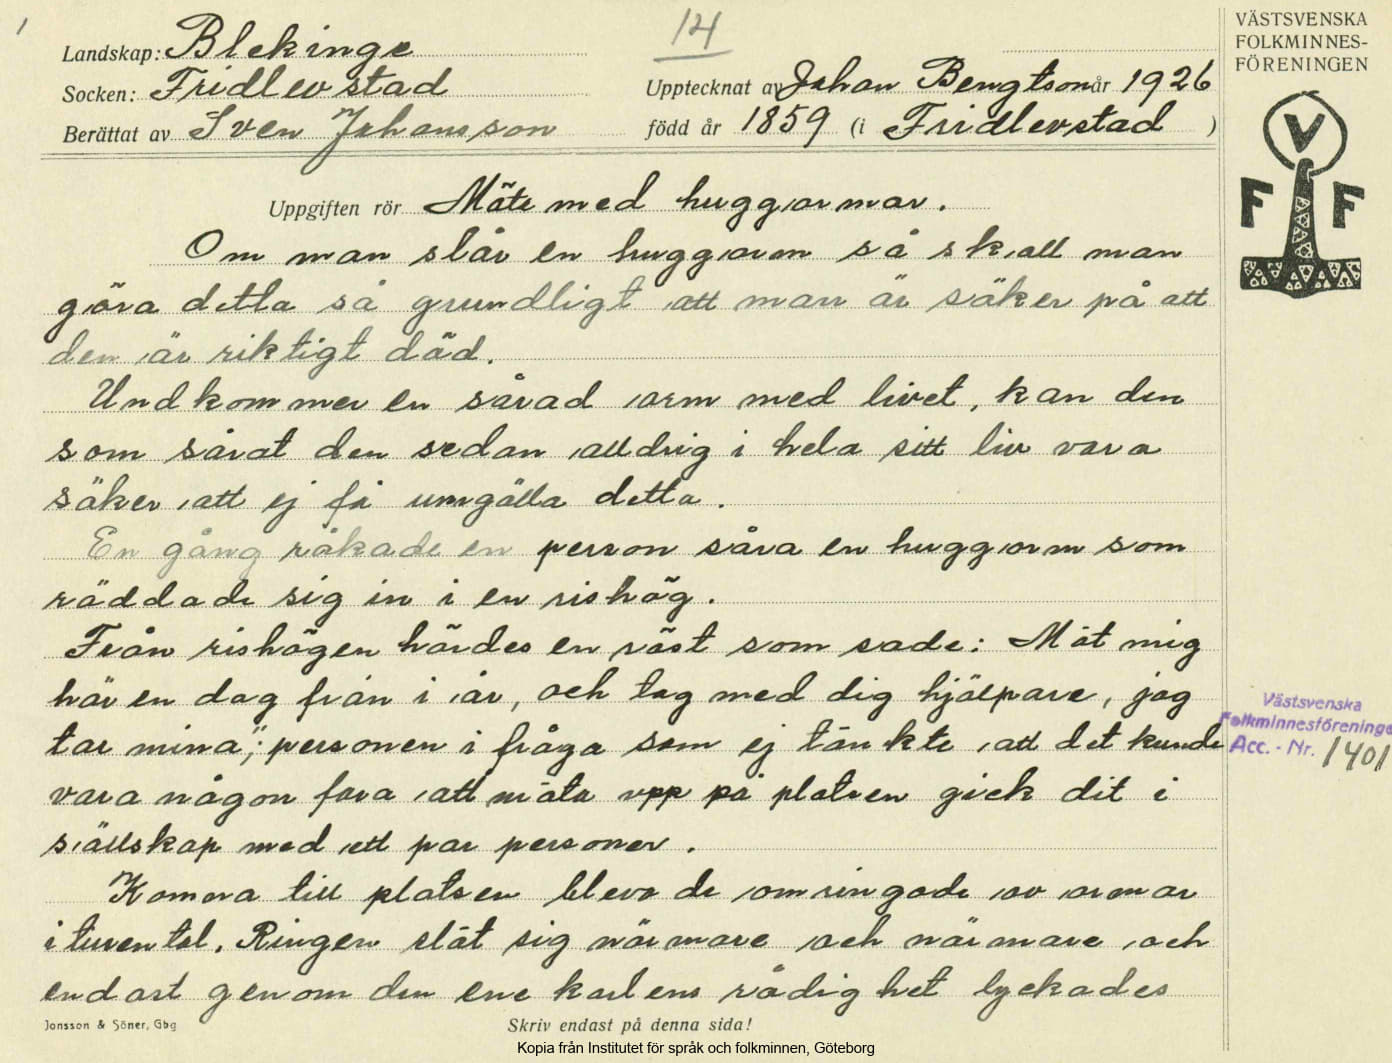 1
14
Landskap: Blekinge
Socken: Fridlevstad
Berättat av Sven Johansson
Upptecknat av Johan Bengtson år 1926
född år 1859 (i Fridlevstad )
VÄSTSVENSKA
FOLKMINNES-
FÖRENINGEN
V
F F
Uppgiften rör Möte med huggormar.
Om man slår en huggorm så skall man
göra detta så grundligt att man är säker på att
den är riktigt död.
Undkommer en sårad orm med livet, kan den
som sårat den sedan alldrig i hela sitt liv vara
säker att ej få umgälla detta.
En gång råkade en person såra en huggorm som
räddade sig in i en rishög.
Från rishögen hördes en röst som sade: Möt mig
här en dag från i år, och tag med dig hjälpare, jag
tar mina"; personen i fråga som ej tänkte att det kunde
vara någon fara att möta upp på platsen gick dit i
sällskap med ett par personer.
Komna till platsen blevo de omringade av ormar
i tusental. Ringen slöt sig närmare och närmare och
endast genom den ene karlens rådighet lyckades
Västsvenska
Folkminnesföreningen
Acc. - Nr. 1401
Jonsson & Söner, Gbg
Skriv endast på denna sida!
Kopia från Institutet för språk och folkminnen, Göteborg